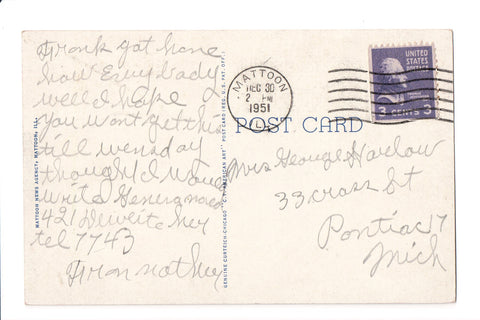 Frank got home
how Everybody
well I hope
you wont get this
till wensday
thought I would
write
421 Dewitt
tel 7743
From
MATTOON
DEC 30
2 PM
1951
ILL.
UNITED
STATES
POSTAGE
3 CENTS 3
POST CARD
Mrs George Harlow
33 cross St
Pontiac 17
Mich
MATTOON NEWS AGENCY, MATTOON, ILL.
GENUINE CURTEICH-CHICAGO "C.T. AMERICAN ART" POST CARD (REG. U.S. PAT. OFF.)